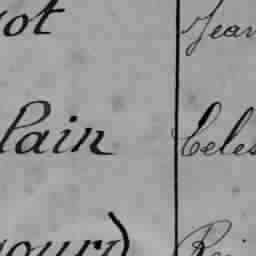 ot Jean
lain Celes
gouri) Rei